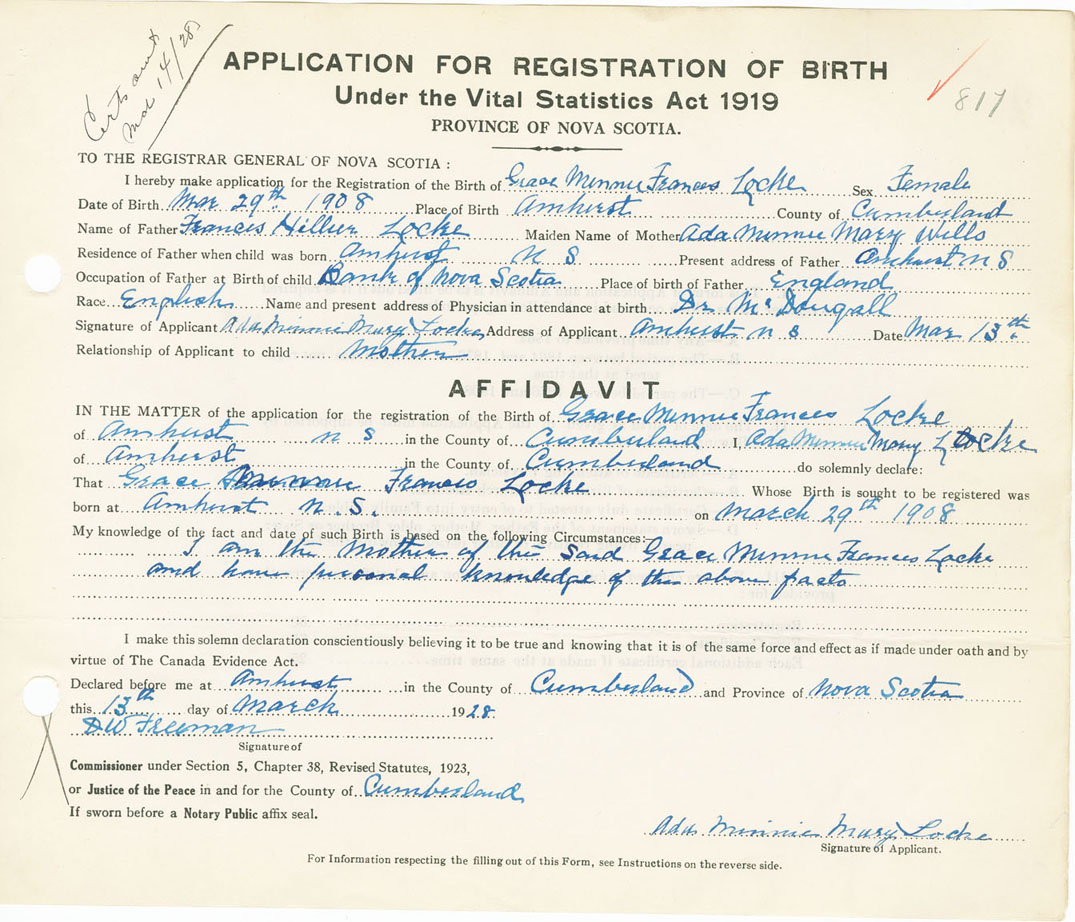 Certs sent
Mch 14/28
APPLICATION FOR REGISTRATION OF BIRTH
Under the Vital Statistics Act 1919
817
PROVINCE OF NOVA SCOTIA.
TO THE REGISTRAR GENERAL OF NOVA SCOTIA :
I hereby make application for the Registration of the Birth of Grace Minnie Frances Locke Sex Female
Date of Birth Mar 29th 1908 Place of Birth Amherst County of Cumberland
Name of Father Frances Hillier Locke Maiden Name of Mother Ada Minnie Mary Wills
Residence of Father when child was born Amherst N S Present address of Father Amherst N S
Occupation of Father at Birth of child Bank of Nova Scotia Place of birth of Father England
Race English Name and present address of Physician in attendance at birth Dr McDougall
Signature of Applicant Ada Minnie Mary Locke Address of Applicant Amherst N S Date Mar 13th
Relationship of Applicant to child Mother
AFFIDAVIT
IN THE MATTER of the application for the registration of the Birth of Grace Minnie Frances Locke
of Amherst N S in the County of Cumberland I, Ada Minnie Mary Locke
of Amherst in the County of Cumberland do solemnly declare:
That Grace Minnie Frances Locke Whose Birth is sought to be registered was
born at Amherst N.S. on March 29th 1908
My knowledge of the fact and date of such Birth is based on the following Circumstances:
I am the Mother of the said Grace Minnie Frances Locke
and have personal knowledge of the above facts
I make this solemn declaration conscientiously believing it to be true and knowing that it is of the same force and effect as if made under oath and by
virtue of The Canada Evidence Act.
Declared before me at Amherst in the County of Cumberland and Province of Nova Scotia
this 13th day of March 1928
DW Freeman
Signature of
Commissioner under Section 5, Chapter 38, Revised Statutes, 1923,
or Justice of the Peace in and for the County of Cumberland
If sworn before a Notary Public affix seal.
Ada Minnie Mary Locke
Signature of Applicant.
For Information respecting the filling out of this Form, see Instructions on the reverse side.